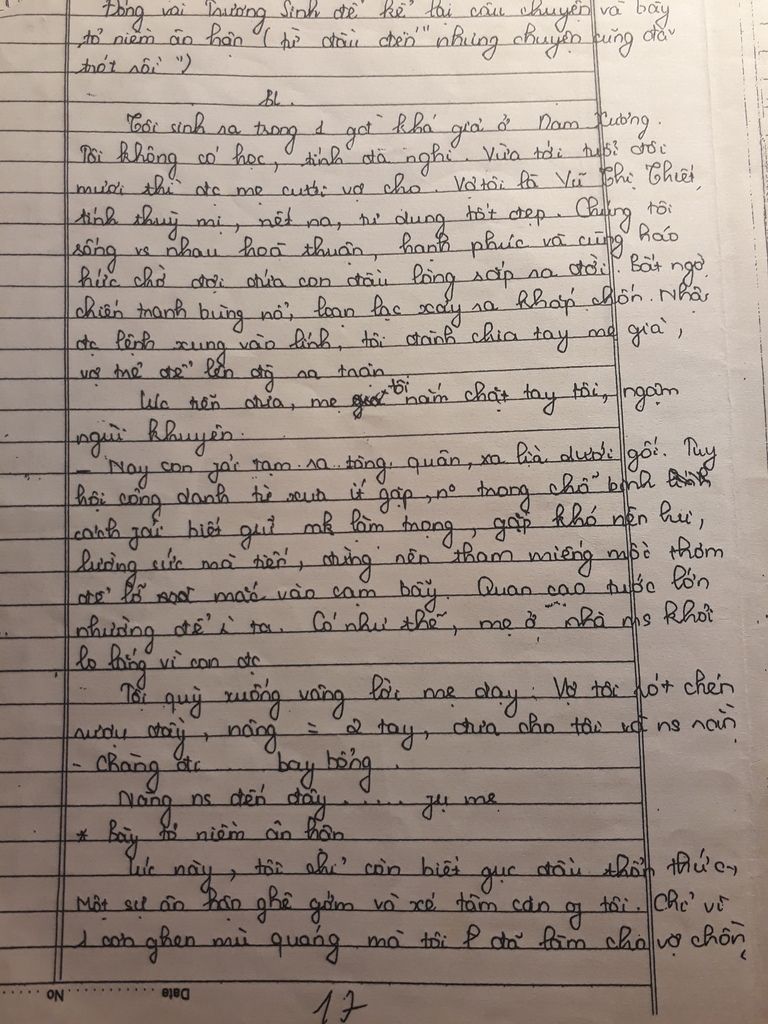 Đóng vai Trương Sinh để kể lại câu chuyện và bày
tỏ niềm ân hận ( từ đầu đến " nhưng chuyện cũng đã
trót rồi ")
BL.
Tôi sinh ra trong 1 gđ khá giả ở Nam Xương.
Tôi không có học, tính đa nghi. Vừa tới tuổi đôi
mươi thì đc mẹ cưới vợ cho. Vợ tôi là Vũ Thị Thiết,
tính thuỳ mị, nết na, tư dung tốt đẹp. Chúng tôi
sống vs nhau hoà thuận, hạnh phúc và cũng háo
hức chờ đợi đứa con đầu lòng sắp ra đời. Bất ngờ
chiến tranh bùng nổ, loạn lạc xảy ra khắp chốn. Nhận
đc lệnh xung vào lính, tôi đành chia tay mẹ già,
vợ trẻ để lên đg ra trận
Lúc tiễn đưa, mẹ tôi nắm chặt tay tôi, ngậm
ngùi khuyên.
- Nay con phải tạm ra tòng quân, xa lìa dưới gối. Tuy
hội công danh từ xưa ít gặp, no trong chỗ binh
cách phải biết giữ mk làm trọng, gặp khó nên lui,
lường sức mà tiến, đừng nên tham miếng mồi thơm
để lỡ mắc vào cạm bẫy. Quan cao tước lớn
nhường để ng ta. Có như thế, mẹ ở nhà ms khỏi
lo lắng vì con đc
Tôi quỳ xuống vâng lời mẹ dạy. Vợ tôi rót chén
rượu đầy, nâng = 2 tay, đưa cho tôi và ns rằng
- Chàng đc .... bay bổng.
Nàng ns đến đây ..... mẹ
* Bày tỏ niềm ân hận
Lúc này, tôi chỉ còn biết gục đầu thổn thức,
Một sự ân hận ghê gớm và xé tâm can tôi. Chỉ vì
1 cơn ghen mù quáng mà tôi đã làm cho vợ chồng
No ...... Date ......
17